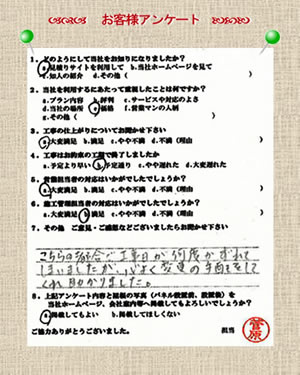 お客様アンケート
1．どのようにして当社をお知りになりましたか？
a.見積りサイトを利用して b.当社ホームページを見て
c.知人の紹介 d.その他（ ）
2．当社を採用するにあたって重視したことは何ですか？
a.プラン内容 b.評判 c.サービスや対応のよさ
d.当社の場所 e.価格 f.営業マンの人柄
g.その他（ ）
3．工事の仕上がりについてお聞かせ下さい
a.大変満足 b.満足 c.やや不満 d.不満（理由 ）
4．工事はお約束の工期で終了しましたか
a.予定より早い b.予定通り c.やや遅れた d.大変遅れた
5．営業担当者の対応はいかがでしたでしょうか？
a.大変満足 b.満足 c.やや不満 d.不満（理由 ）
6．施工管理担当者の対応はいかがでしたでしょうか？
a.大変満足 b.満足 c.やや不満 d.不満（理由 ）
7．その他 ご意見・ご感想などございましたらお聞かせ下さい
こちらの都合で工事日が何度かずれて
しまいましたが、心よく変更の手配をして
くれ助かりました。
8．上記アンケート内容と屋根の写真（パネル設置前、設置後）を
当社ホームページ、会社案内等へ掲載してもよろしいでしょうか？
a.掲載してもよい b.掲載してほしくない
ご協力ありがとうございました。 担当 菅原